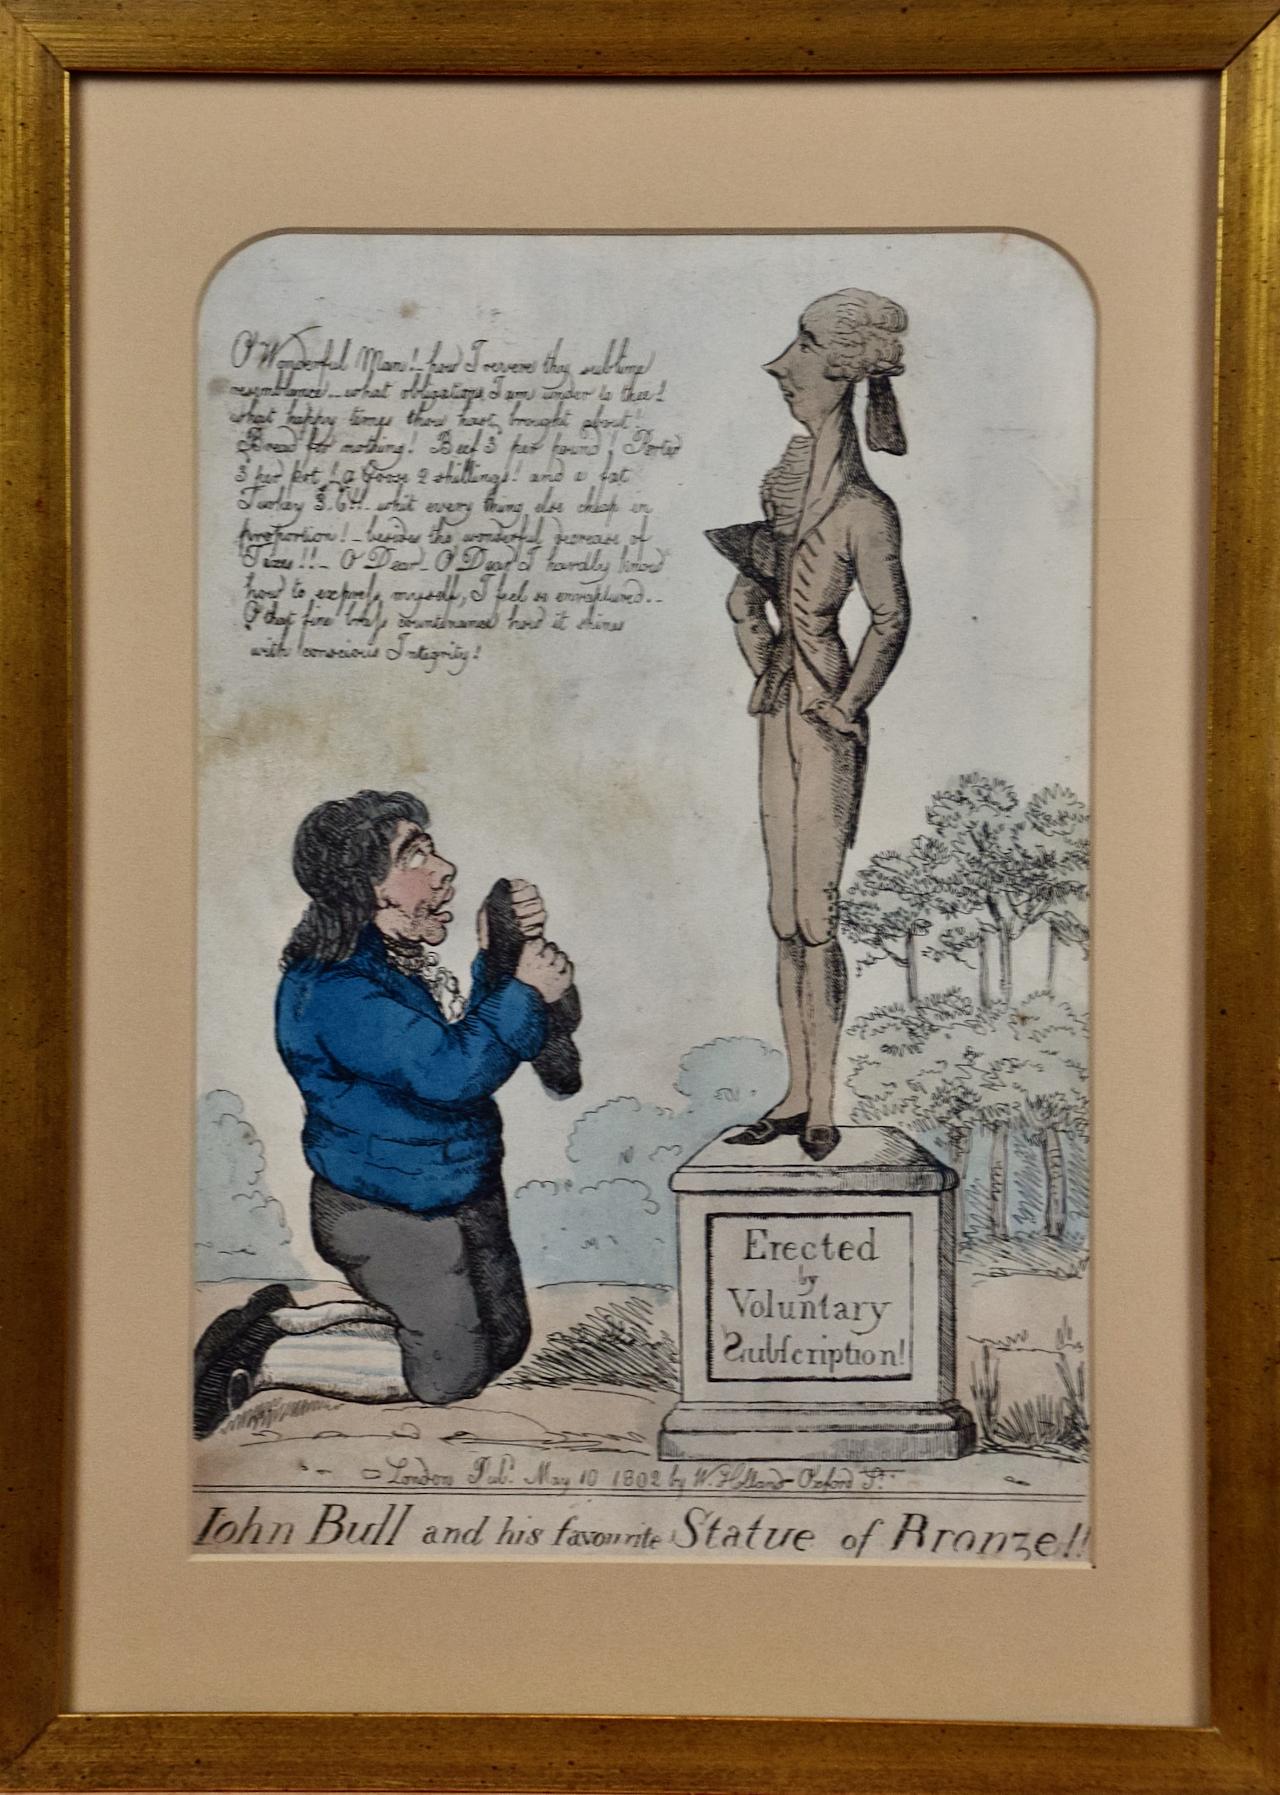 O' Wonderful Man! - how I revere thy sublime
resemblance - what obligations I am under to thee!
what happy times thou hast brought about!
Bread for nothing! Beef 3 per pound! Porter
3 per pot! a Goose 2 shillings! and a fat
Turkey 3. 6!! - whit every thing else cheap in
proportion! - besides the wonderful decrease of
Taxes!! - O' Dear - O' Dear I hardly know
how to express myself, I feel so enraptured. -
O' that fine brass countenance how it shines
with conscious Integrity!
Erected
by
Voluntary
Subſcription!
London Pubd. May 10 1802 by W. Holland Oxford St.
Iohn Bull and his favourite Statue of Bronze!!